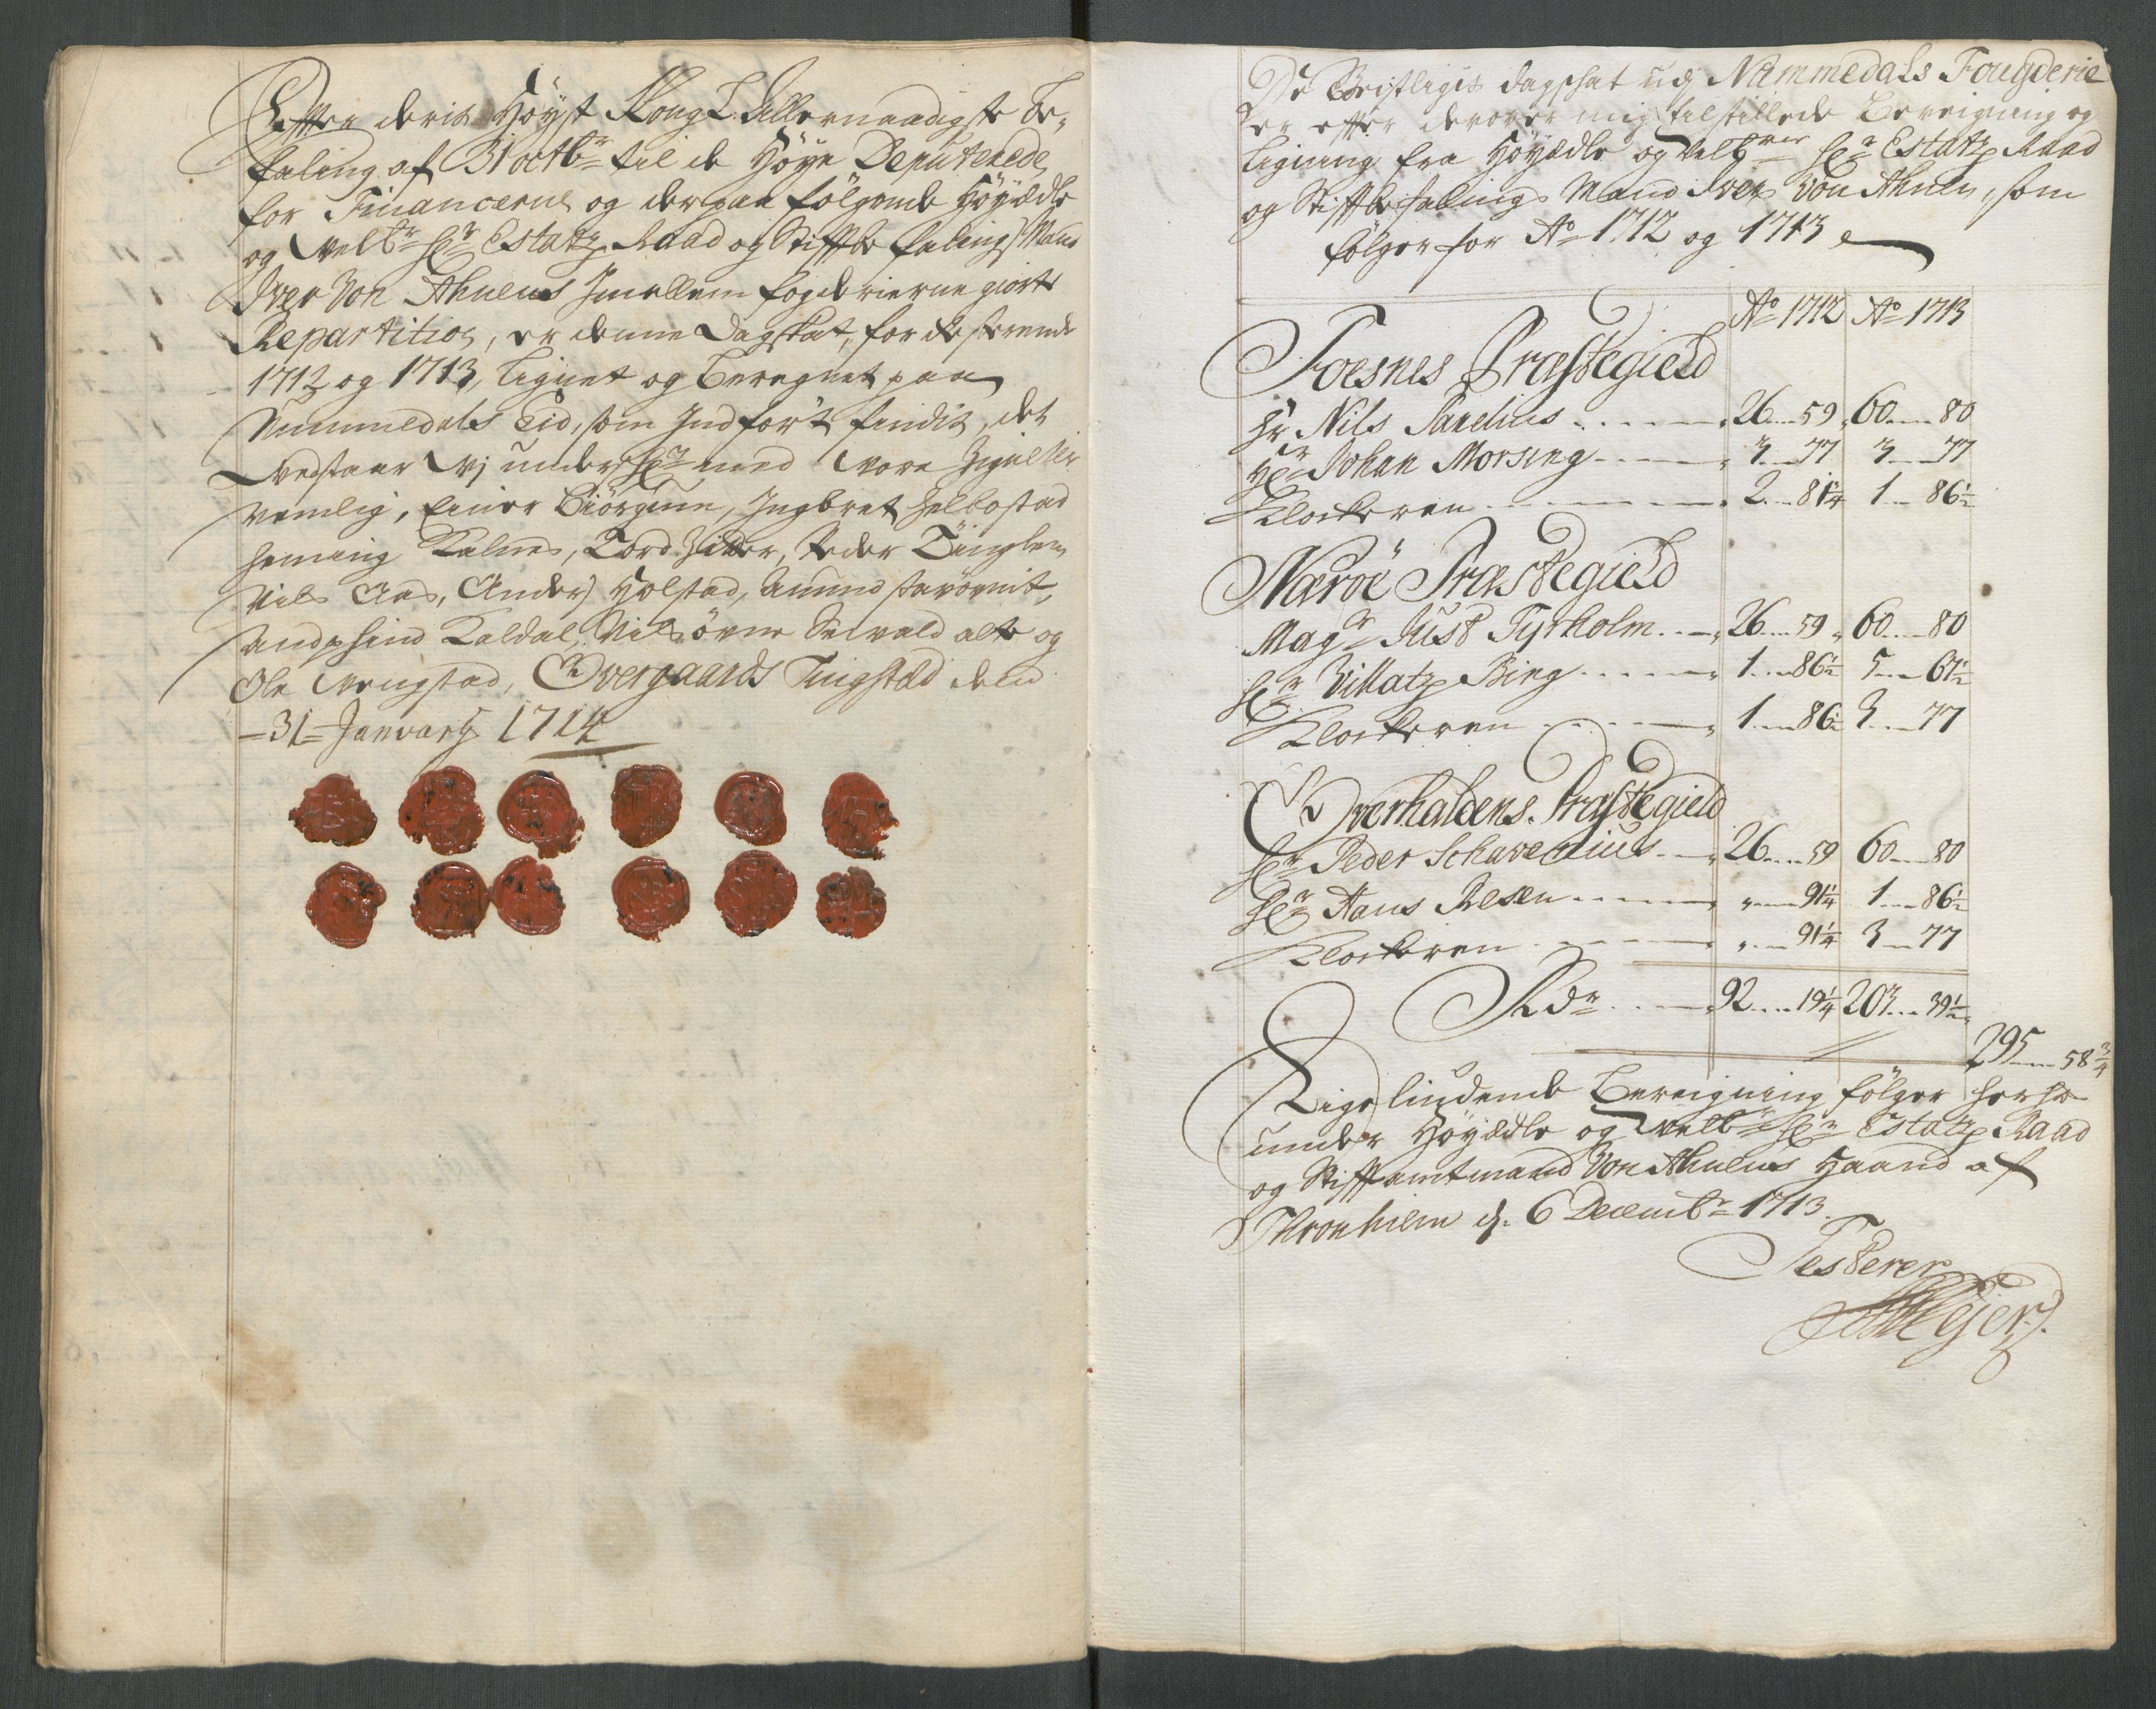 Effter deris Höyst Kongl. Allernaadigste be-
faling af 31 octbr til de Höye Deputerede
for Financerne og derpaa fölgende Höyædle
og Velbr Hr Estatz Raad og Stifftbefalings Mand
Iver Von Ahnens Imellem fogderierne giorte
Repartition, er denne Dagskat, for
1712 og 1713, lignet og beregnet paa
Nummedals Eid, som Indfört findis, det
vedstaar Vj under med vore Zignetter
nemlig, Einer Biörgum, Ingbret Helbostad
Heming Kalnes, Tord Peder
Nils Aas, Anders Holstad, Amund
Kaldal, Nils alte og
Ole Vengstad, Overgaards Tingstæd den
31 January 1714
De Geistliges dagschat udj Nummedals Fougderie
er efter derover mig tilstillede Bereigning og
Ligning fra Höyædle og Velbr Hr Estatz Raad
og Stifftbefalings Mand Iver Von Ahnen, som
fölger for Ao 1712 og 1713
Ao 1712 Ao 1713
Foesnes Præstegield
Hr Nils Parelius 26 59 60 80
Hr Johan Morsing 3 77 3 77
Klockeren 2 81¼ 1 86½
Næröe Præstegield
Magr Just Tyrholm 26 59 60 80
Hr Villatz Bing 1 86½ 5 67½
Klockeren 1 86½ 3 77
Overhaldens Præstegield
Hr Peder Schavenius 26 59 60 80
Hr Hans Resen " 91¼ 1 86½
Klockeren " 91¼ 3 77
Rdr 92 19¼ 203 39½
295 58¾
Ligeliudende Bereigning fölger her
under Höyædle og Velbr Hr Estatz Raad
og Stifftamtmand Von Ahnens Haand af
Thronhiem d. 6 Decembr 1713.
Testerer